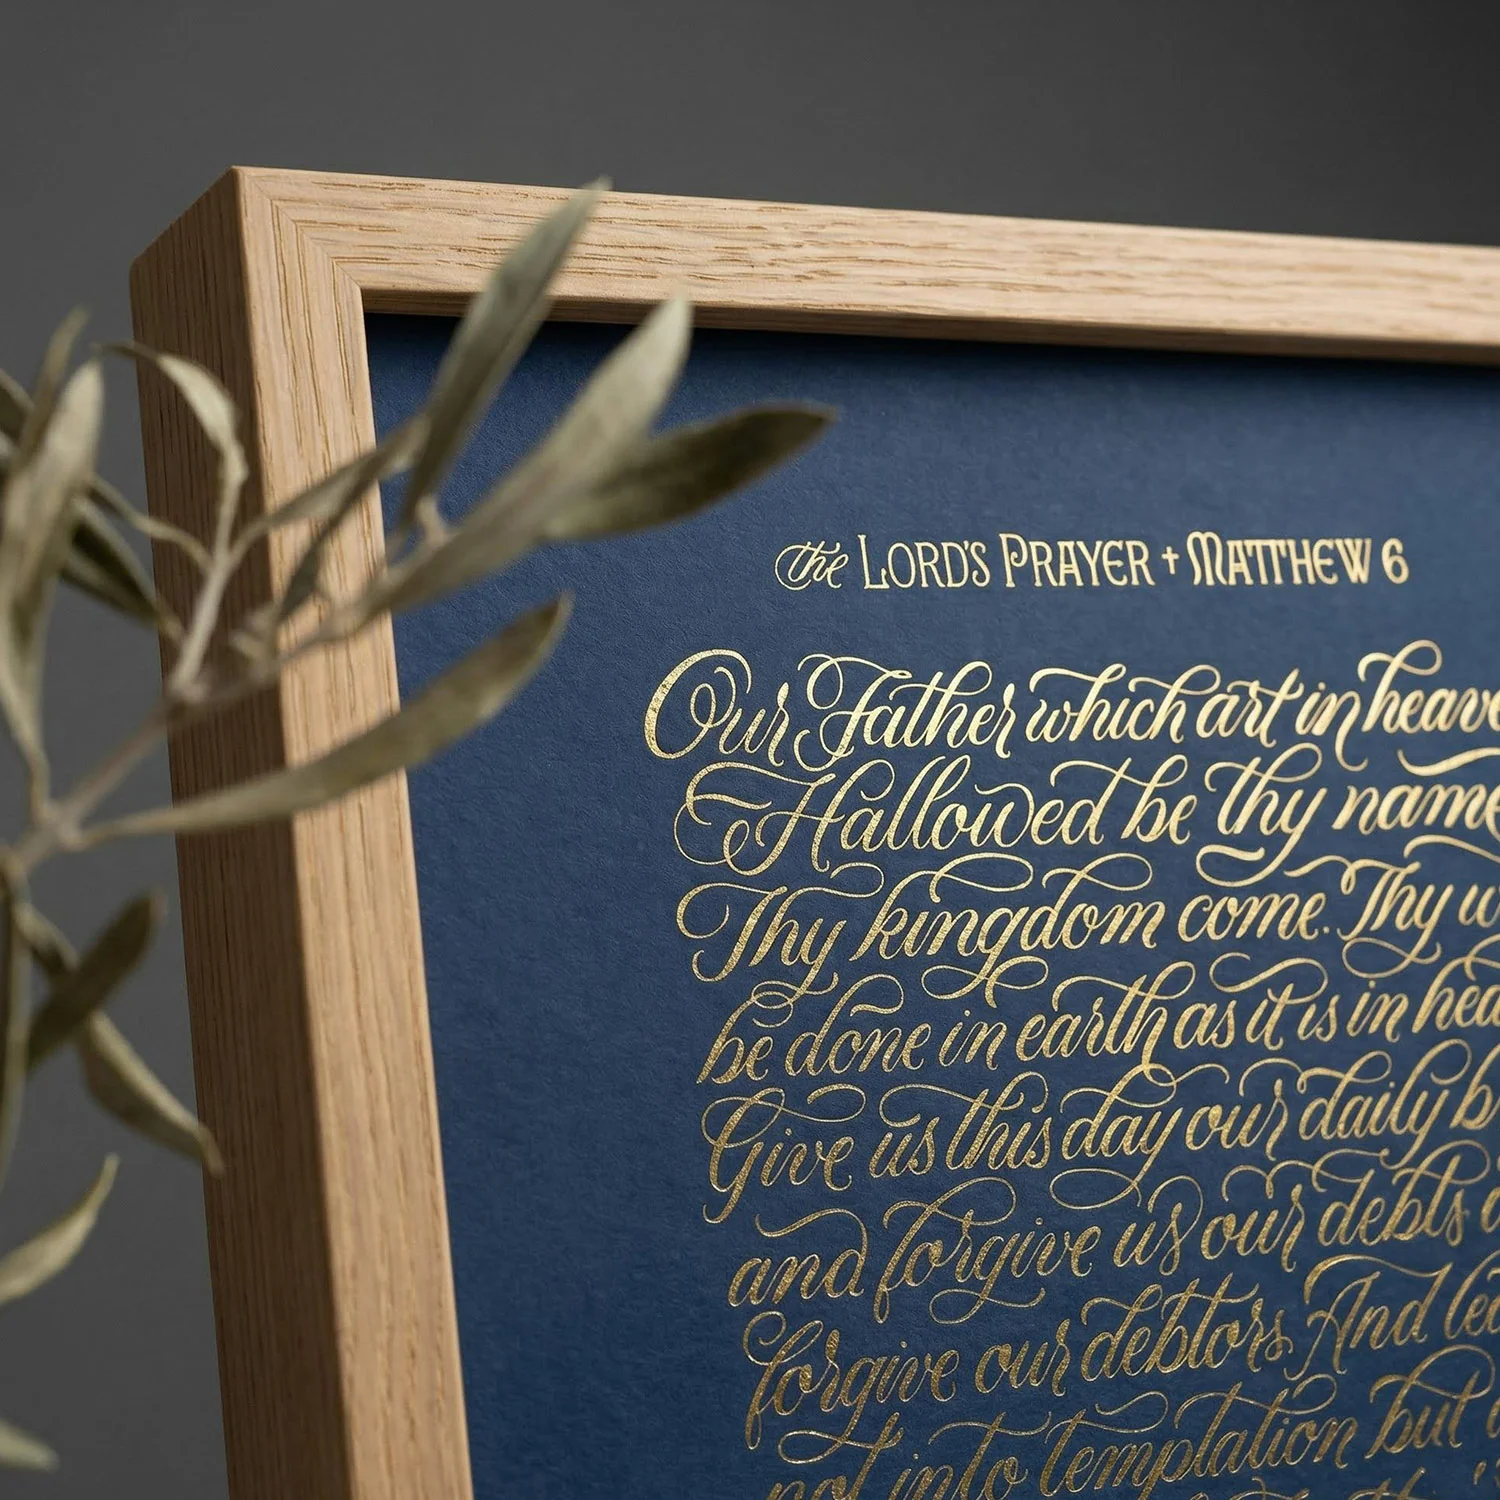 the LORD'S PRAYER + MATTHEW 6
Our Father which art in heave
Hallowed be thy name
Thy kingdom come. Thy w
be done in earth as it is in hea
Give us this day our daily b
and forgive us our debts a
forgive our debtors And lea
not into temptation but